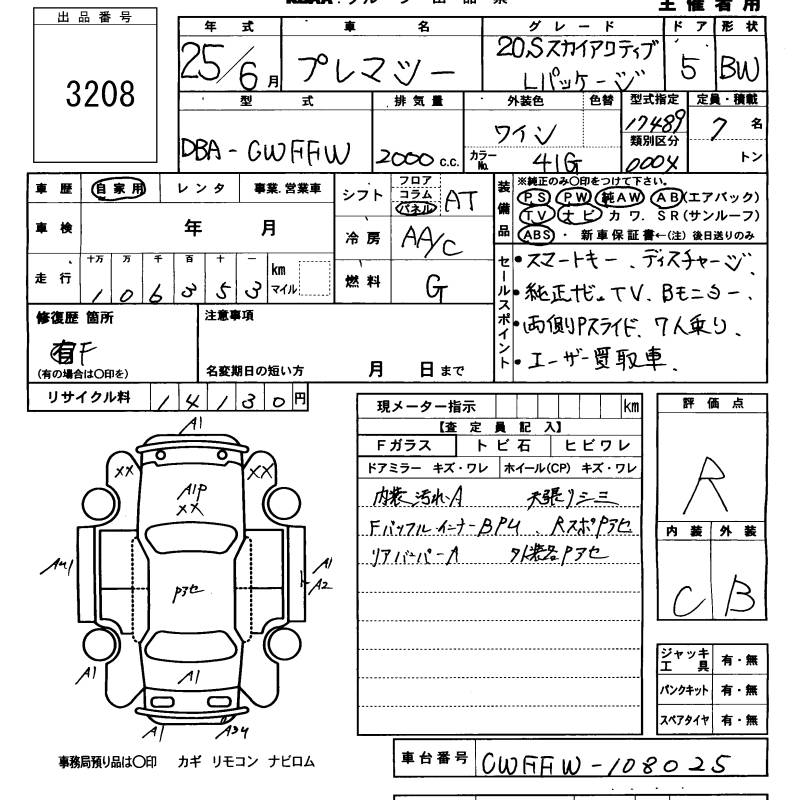 主催者用
出品番号
3208
年式 車名 グレード ドア 形状
25/6月 プレマシー 20Sスカイアクティブ Lパッケージ 5 BW
型式 排気量 外装色 色替 型式指定 定員・積載
DBA-CWFFW 2000c.c. ワイン 17489 7名
類別区分
カラーNo. 41G 000X トン
車歴 自家用 レンタ 事業.営業車
シフト フロア コラム パネル AT
装備品
※純正のみ○印をつけて下さい。
PS PW 純AW AB(エアバック)
TV ナビ カワ. SR(サンルーフ)
ABS ・ 新車保証書←(注)後日送りのみ
車検 年 月
冷房 AA/C
走行 十万 万 千 百 十 一
106353 km マイル
燃料 G
セールスポイント
・スマートキー、ディスチャージ、
・純正ナビ。TV、Bモニター、
・両側Pスライド、7人乗り、
・ユーザー買取車、
修復歴 箇所
有F
(有の場合は○印を)
注意事項
名変期日の短い方 月 日まで
リサイクル料 14130円
現メーター指示 km
【査定員記入】
Fガラス トビ石 ヒビワレ
ドアミラー キズ・ワレ ホイール(CP) キズ・ワレ
内装汚れA 天張りシミ
Fバッフルインナー BPU、RスポPアセ
リアバンパーA 外装各Pアセ
評価点
R
内装 外装
C B
A1
XX XX
A1P
XX
A1
A2
Pアセ
A1
A1
A1
ジャッキ工具 有・無
パンクキット 有・無
スペアタイヤ 有・無
事務局預り品は○印 カギ リモコン ナビロム
車台番号 CWFFW-108025